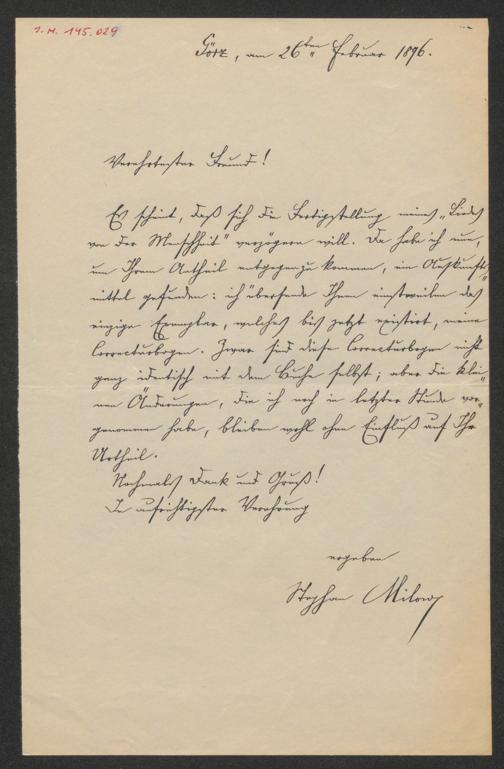 I. N. 145.029
Görz, am 26ten Februar 1896.
Verehrtester Freund!
Es scheint, daß sich die Fertigstellung meines „Liedes
von der Menschheit“ verzögern will. Da habe ich nun,
um Ihrem Antheil entgegenzukommen, ein Auskunfts-
mittel gefunden: ich übersende Ihnen einstweilen das
einzige Exemplar, welches bis jetzt existirt, meine
Correcturbogen. Zwar sind diese Correcturbogen nicht
ganz identisch mit dem Buche selbst; aber die klei-
nen Änderungen, die ich noch in letzter Stunde vor-
genommen habe, bleiben wohl ohne Einfluß auf Ihr
Urtheil.
Nochmals Dank und Gruß!
In aufrichtigster Verehrung
ergeben
Stephan Milow